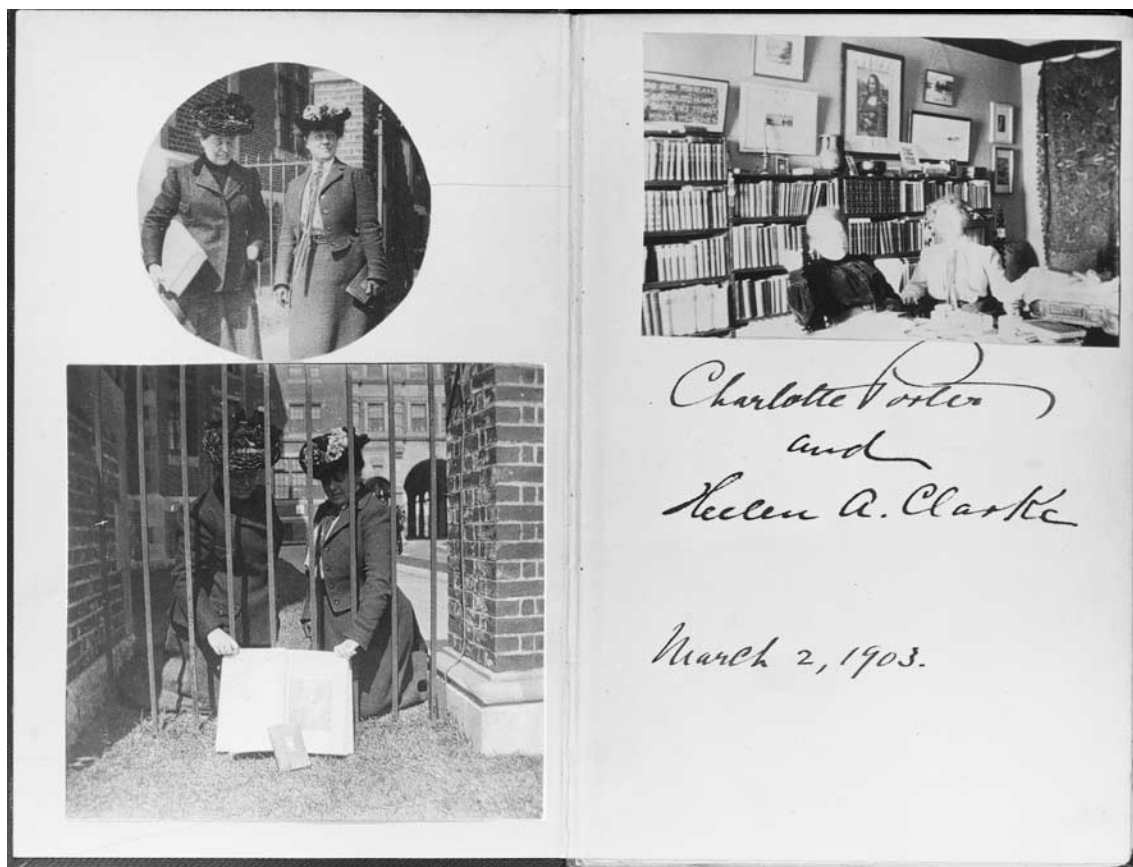 Charlotte Porter
and
Helen A. Clarke
March 2, 1903.